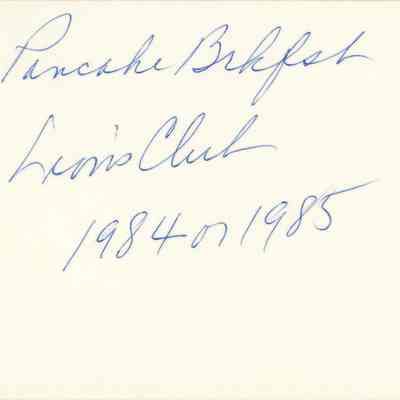 Pancake Brkfst
Lion's Club
1984 or 1985